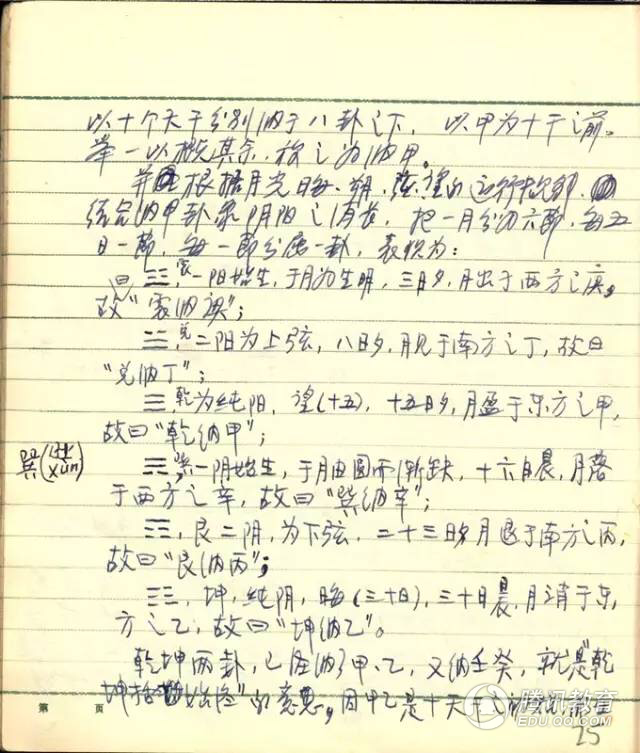 以十个天干分别纳于八卦之下，以甲为十干之前。
举一以概其余，故之为纳甲。
并根据月光晦、朔、弦、望的运行
结合纳甲卦象阴阳之消长，把一月分为六节，每五
日一节，每一节分属一卦，表现为：
曰 ☳，震一阳始生，于月为生明，三日夕，月出于西方之庚，
故“震纳庚”；
☱，兑二阳为上弦，八日夕，月见于南方之丁，故曰
“兑纳丁”；
☰，乾为纯阳，望(十五)，十五日夕，月盈于东方之甲，
故曰“乾纳甲”；
巽(xùn)
☴，巽一阴始生，于月由圆而渐缺，十六日晨，月落
于西方之辛，故曰“巽纳辛”；
☶，艮二阴，为下弦，二十三日夕月退于南方之丙，
故曰“艮纳丙”；
☷，坤，纯阴，晦(三十日)，三十日晨，月消于东
方之乙，故曰“坤纳乙”。
乾坤两卦，已经纳了甲、乙，又纳壬癸，就是“乾
坤括始终”的意思，因甲乙是十天干之
第 页
腾讯教育
EDU.QQ.COM
25